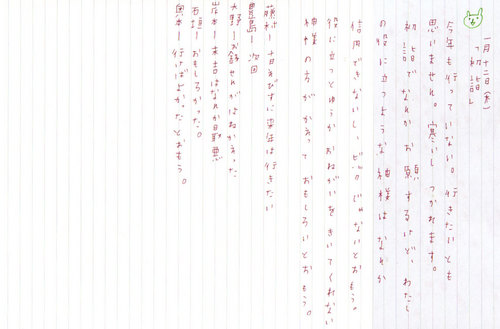 一月十二日(木)
「初詣」
今年も行っていない。行きたいとも
思いません。寒いし つかれます。
初詣でなんかお願いするけど、わたし
の役に立つような神様はなんか
信用できないし、ださいじゃないとおもう。
役に立つとゆうかおねがいをきいてくれない
神様の方が かえって おもしろいとおもう。
藤村ー十日えびすに来年は行きたい
豊島ー次回
大野ーお餅せんがはねかえった
岸本ー末吉はなんか最悪
石垣ーおもしろかった。
奥本ー行けばよかったとおもう。